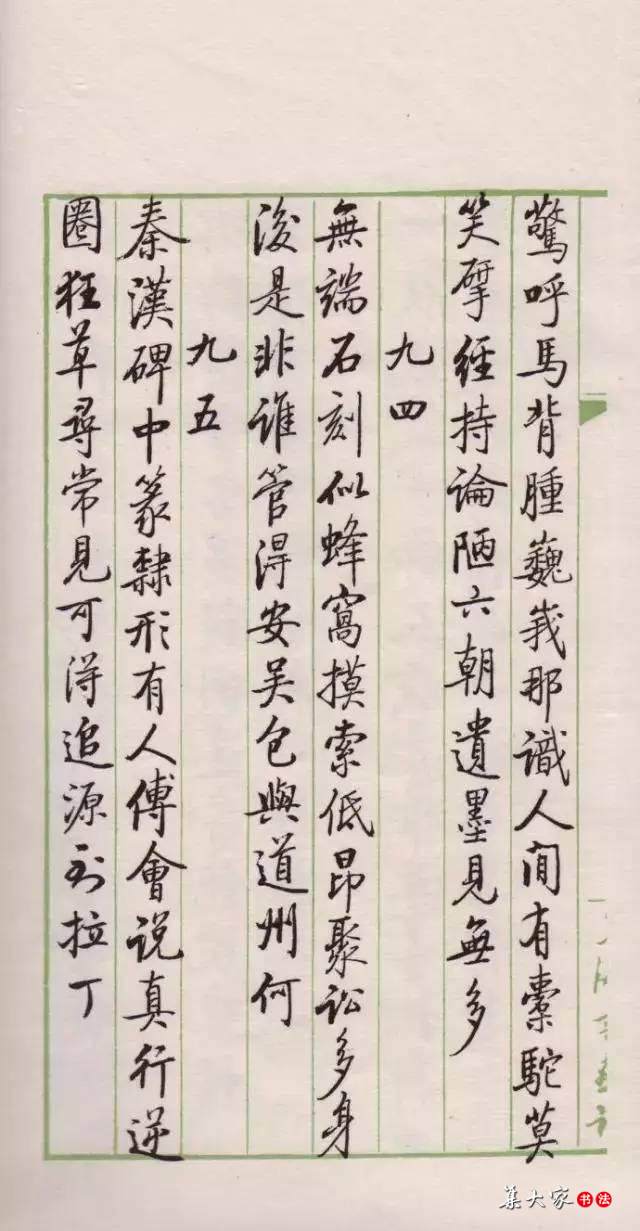 驚呼馬背腫巍峩那識人間有橐駝莫
笑揅經持論陋六朝遺墨見無多
九四
無端石刻似蜂窩摸索低昂聚訟多身
後是非誰管得安吴包與道州何
九五
秦漢碑中篆隸形有人傅會说真行逆
圈狂草尋常見可得追源到拉丁
集大家
書法